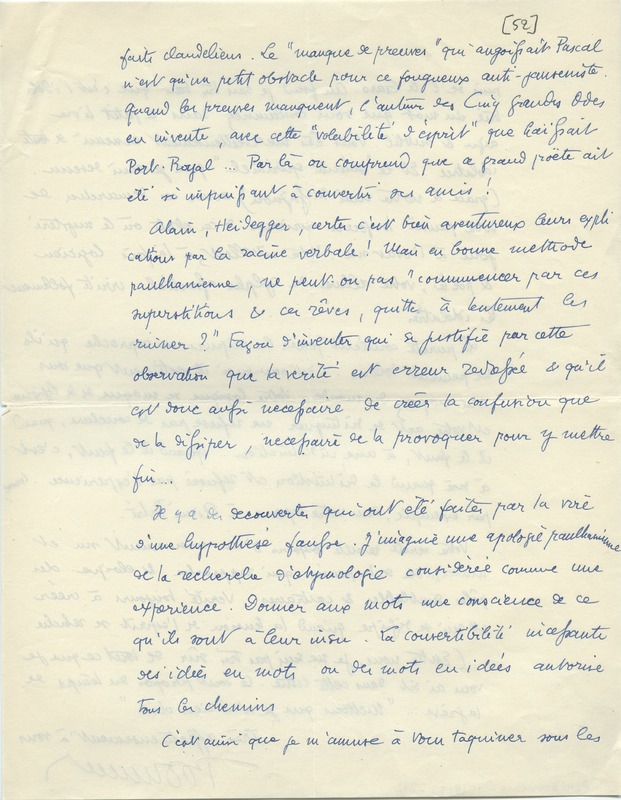 [52]
faits claudéliens. Le "manque de preuves" qui angoissait Pascal
n'est qu'un petit obstacle pour ce fougueux anti-janséniste.
quand les preuves manquent, l'auteur des Cinq grandes Odes
en invente, avec cette "volubilité d'esprit" que haïssait
Port-Royal... Par là on comprend que ce grand poëte ait
été si impuissant à convertir ses amis!
Alain, Heidegger, certes c'est bien aventureux leurs expli
cations par la racine verbale! Mais en bonne méthode
paulhanienne, ne peut-on pas "commencer par ces
superstitions & ces rêves, quitte à lentement les
ruiner?" Façon d'inventer qui se justifie par cette
observation que la verité est erreur redressée & qu'il
est donc aussi necessaire de créer la confusion que
de la dissiper, necessaire de la provoquer pour y mettre
fin...
Il y a des decouvertes qui ont été faites par la voie
d'une hypothèse fausse. J'imagine une apologie paulhanienne
de la recherche d'etymologie considérée comme une
experience. Donner aux mots une conscience de ce
qu'ils sont à leur insu. La convertibilité incessante
des idées en mots ou des mots en idées autorise
tous les chemins
C'est ainsi que je m'amuse à vous taquiner sous les